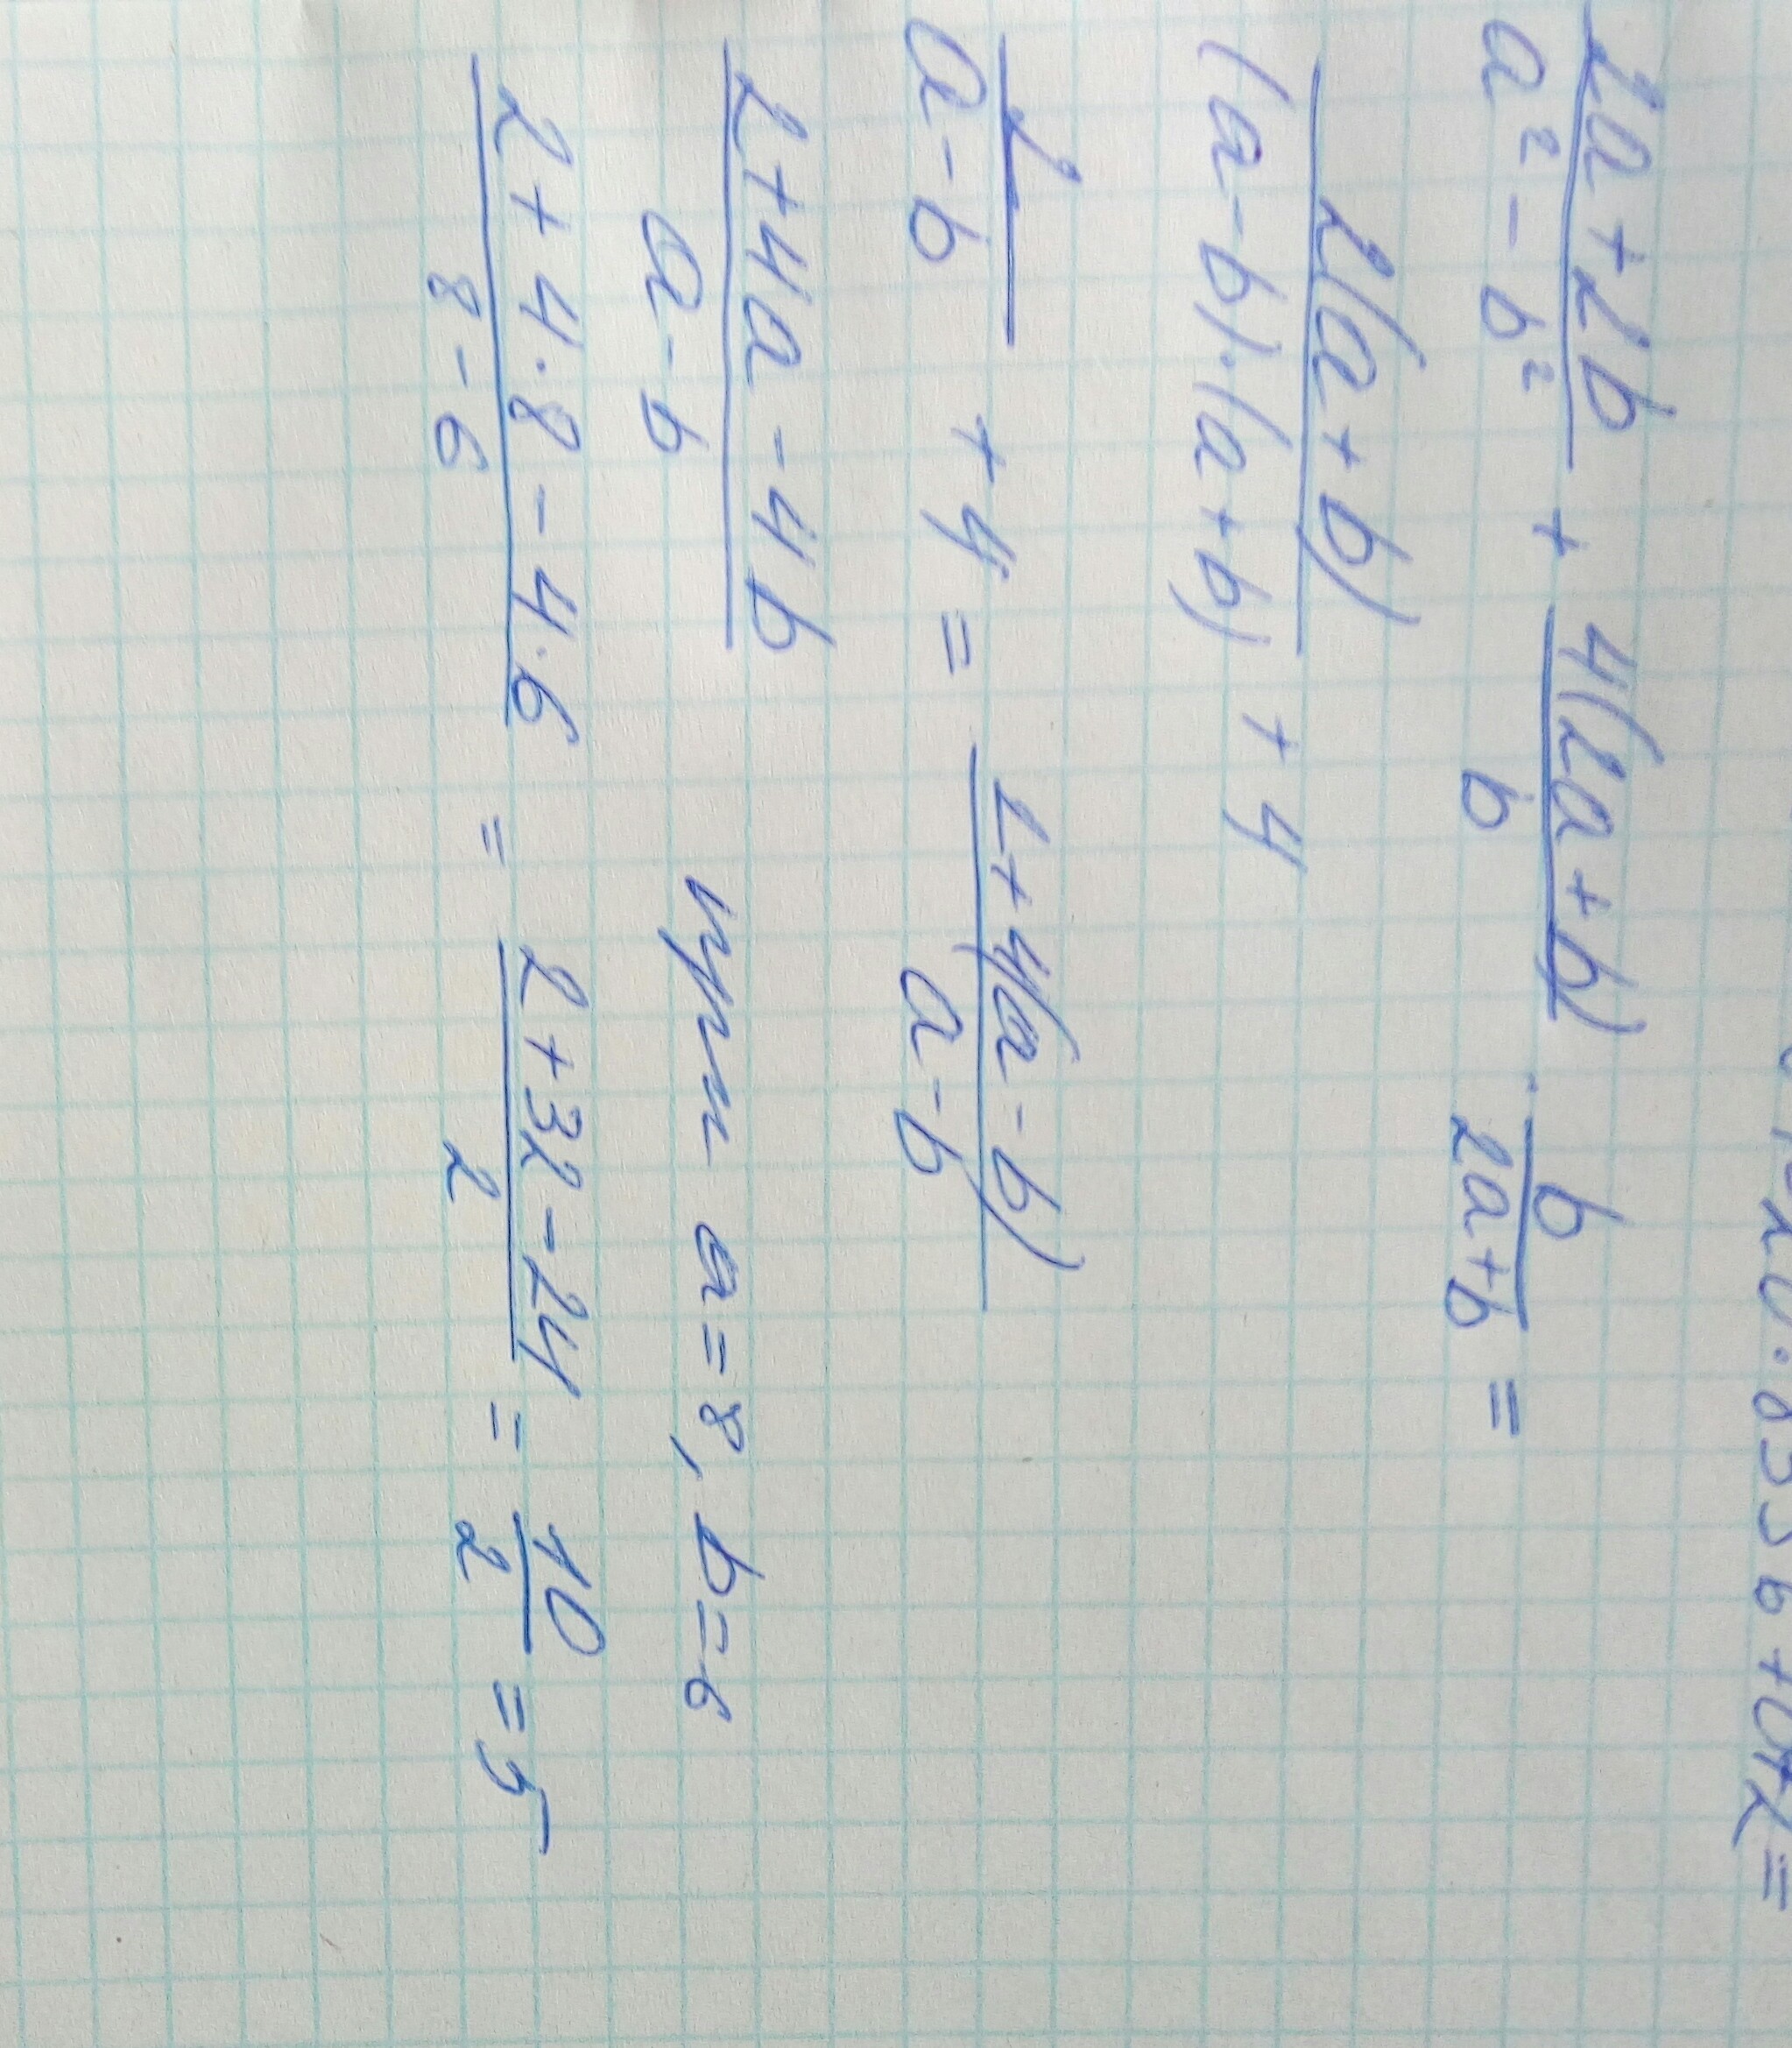 (2a + 2b)/(a² - b²) + 4(2a + b)/b · b/(2a+b) =
2(a+b)/((a-b)·(a+b)) + 4
2/(a-b) + 4 = (2+4(a-b))/(a-b)
(2+4a-4b)/(a-b) при a=8, b=6
(2+4·8-4·6)/(8-6) = (2+32-24)/2 = 10/2 = 5